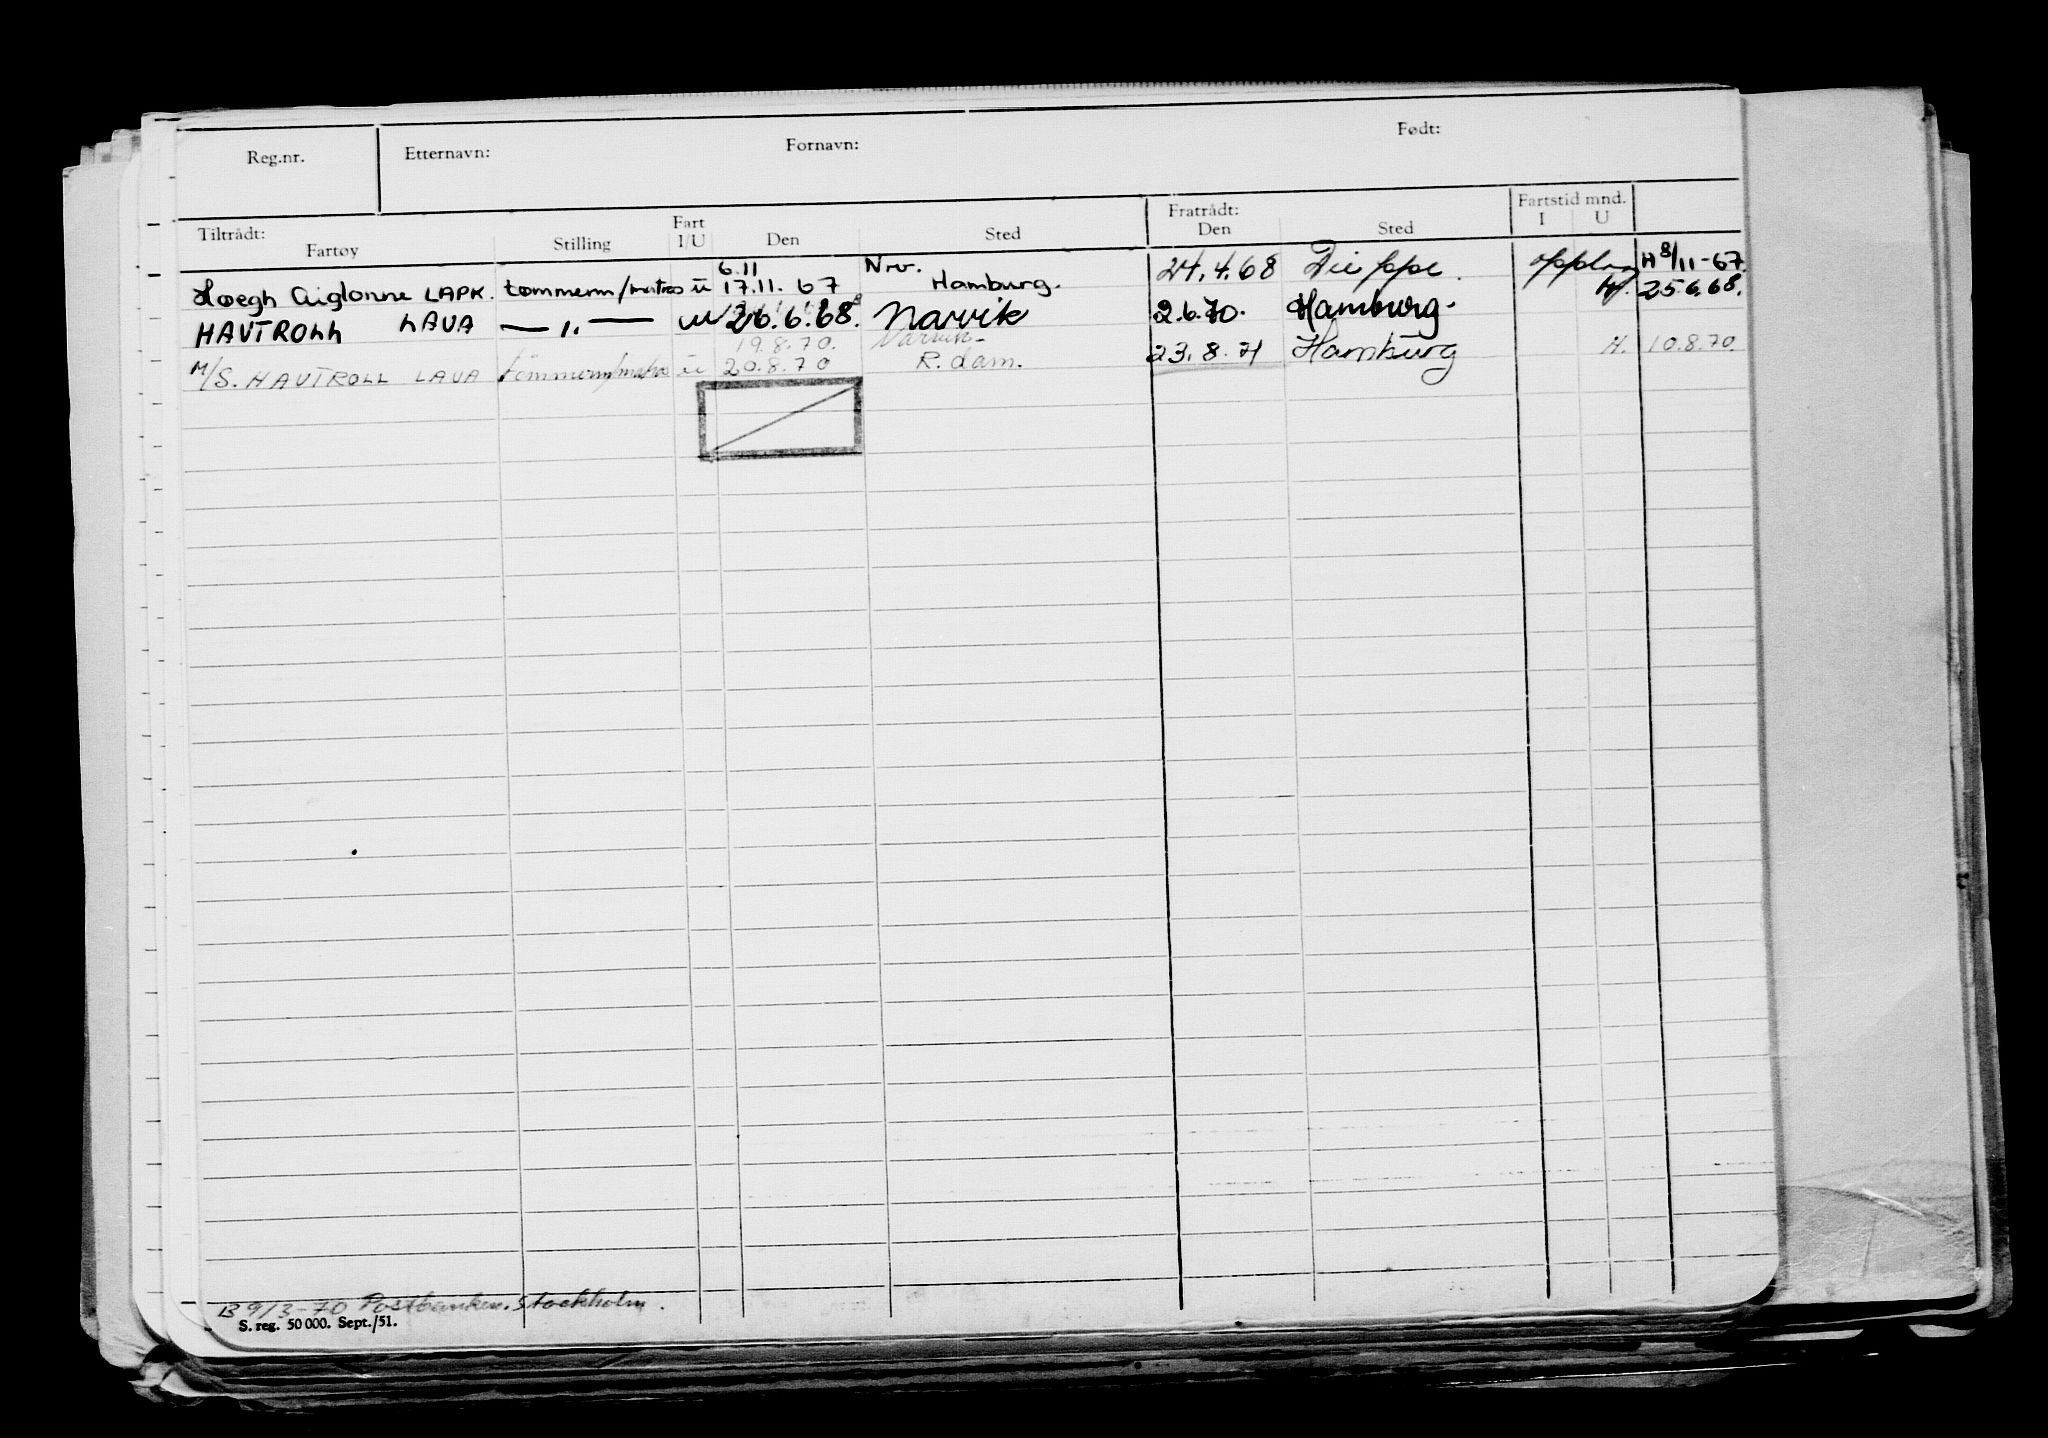 Reg.nr. Etternavn: Fornavn: Født:
Tiltrådt: Fartøy Stilling Fart I/U Den Sted Fratrådt: Den Sted Fartstid mnd. I U
6.11 Nrv.
Hoegh Aiglonne LAPK. tømmerm/matros ü 17.11.67 Hamburg. 24.4.68 Dieppe. H 8/11-67.
HAVTROLL LAVA —〃— u 26.6.68. Narvik 2.6.70. Hamburg. H. 25.6.68.
19.8.70. Narvik-
M/S. HAVTROLL LAVA tömmerm/matros ü 20.8.70 R.dam. 23.8.71 Hamburg H. 10.8.70.
B 9/3-70 Postbanken. Stockholm.
S. reg. 50 000. Sept./51.